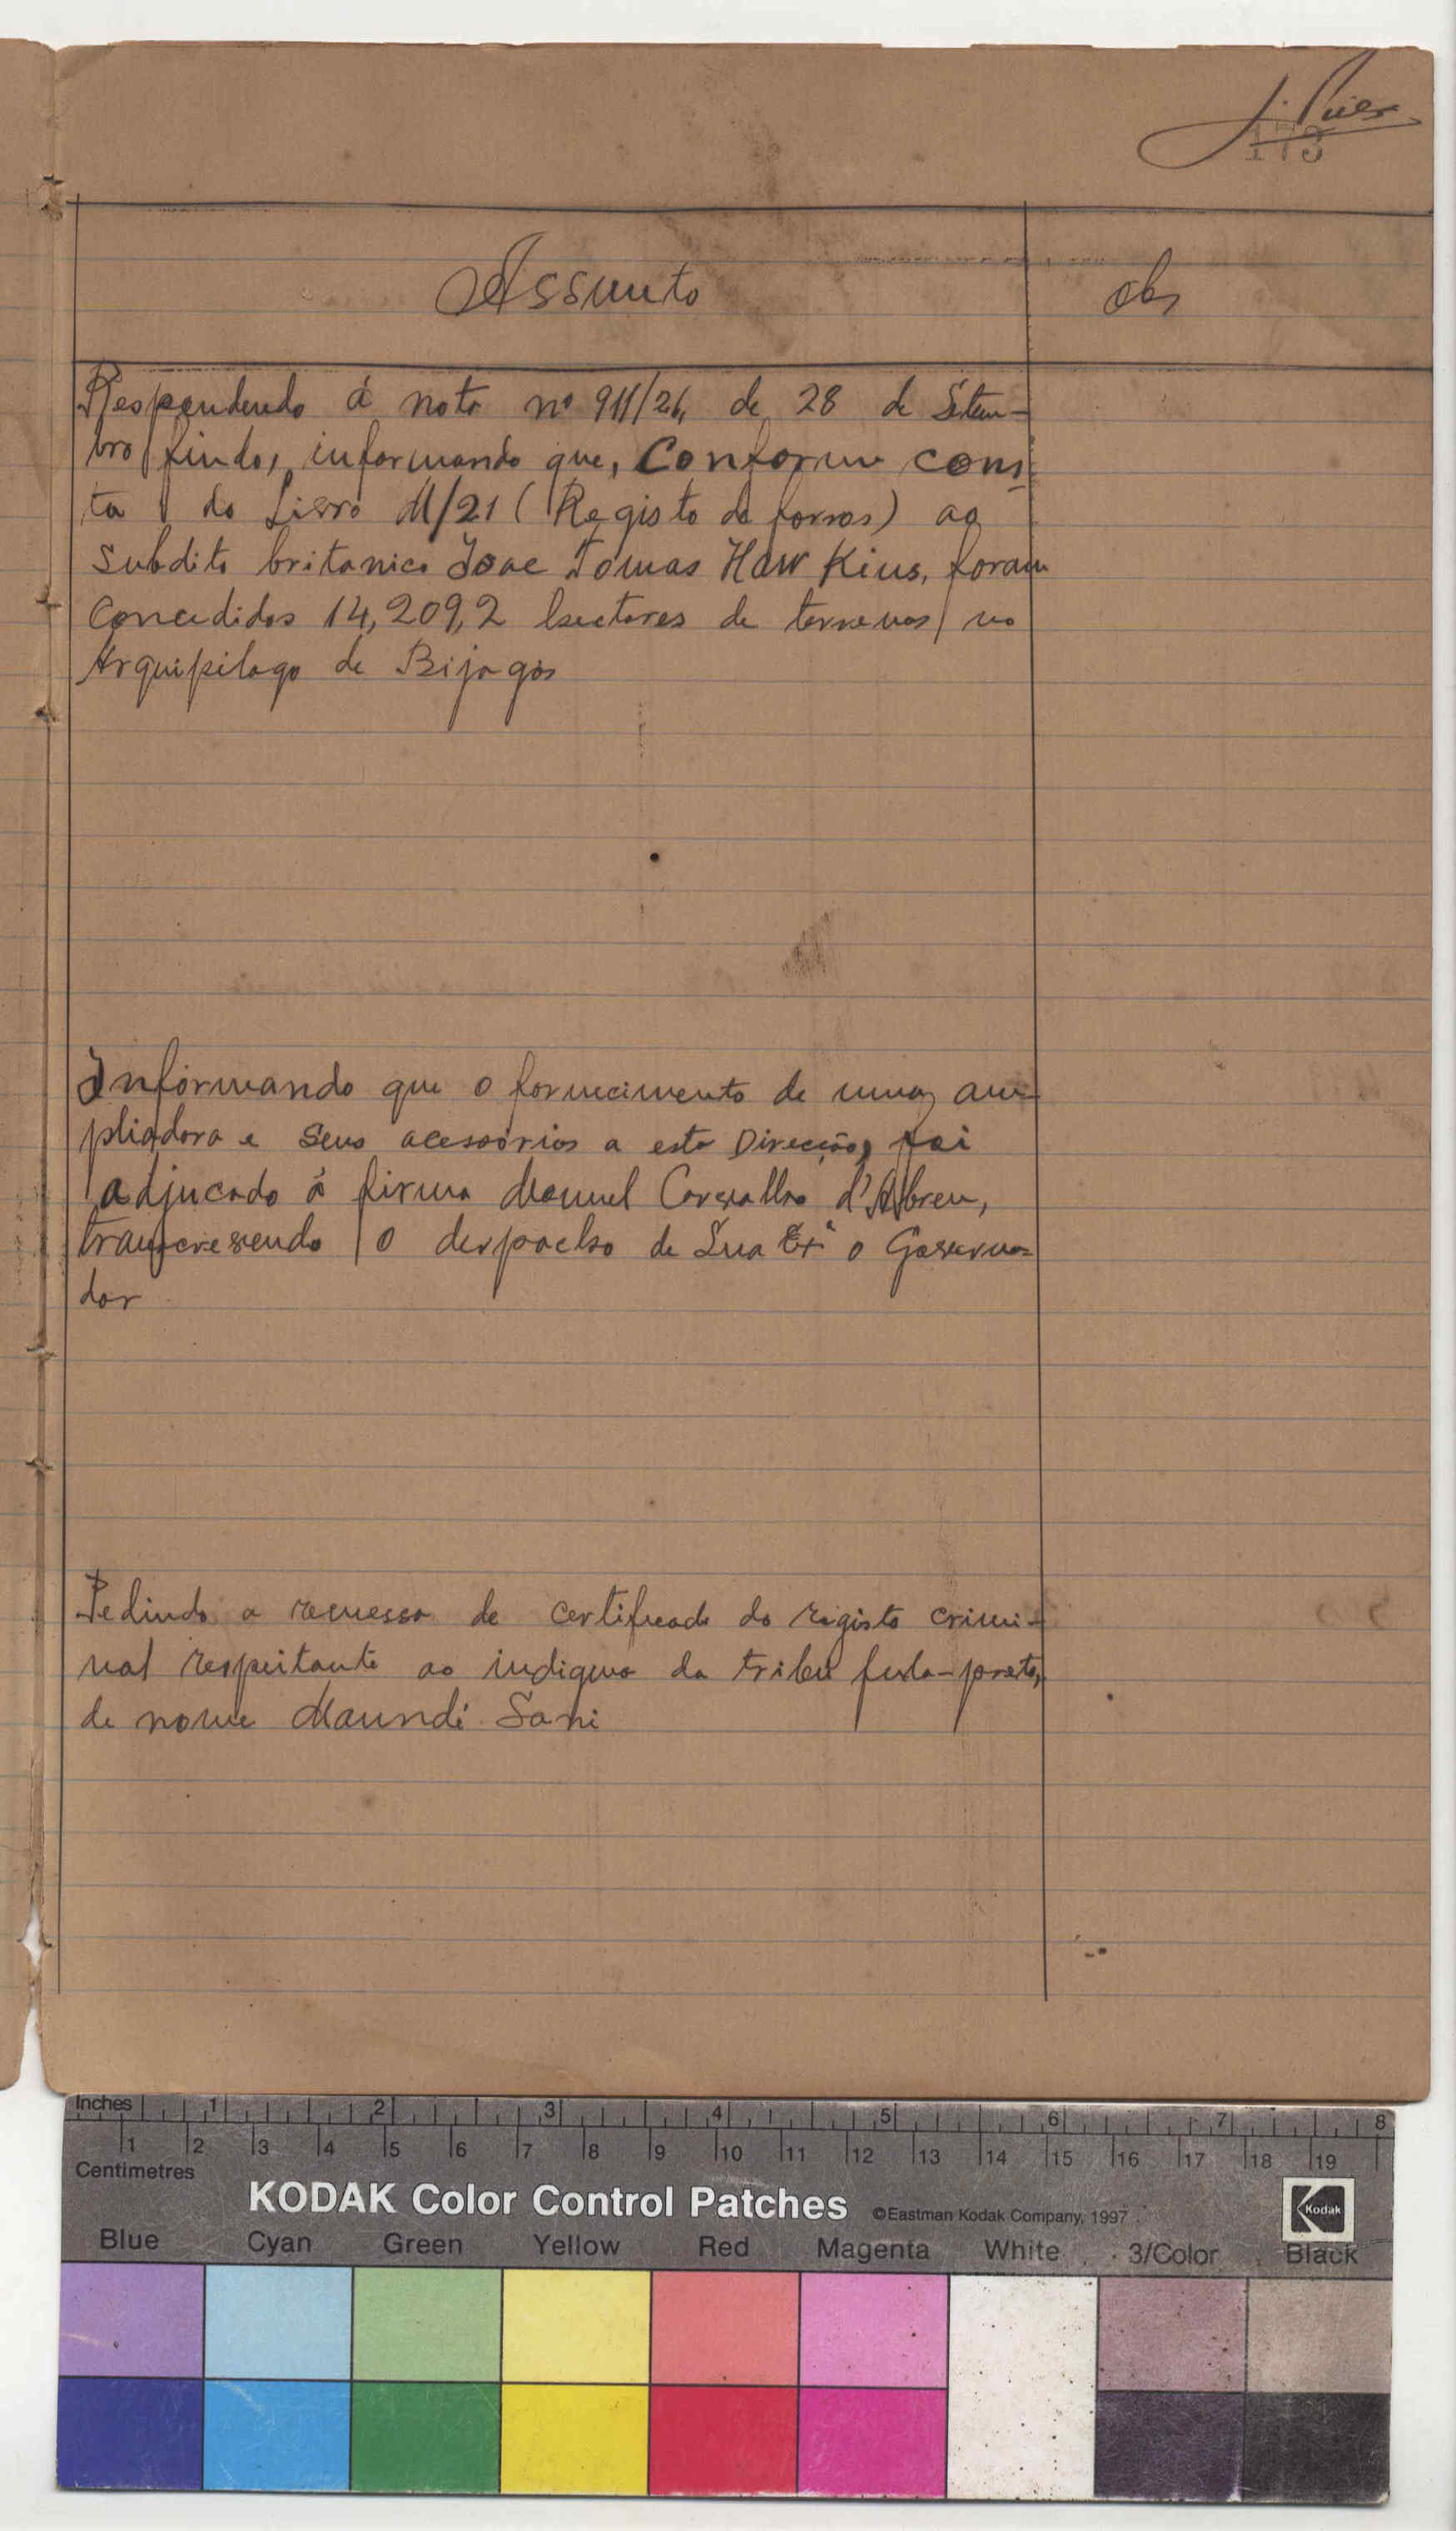 J. Pires
173
Assunto
obs
Respondendo á nota nº 911/26, de 28 de Setem-
bro findo, informando que, Conforme cons-
ta do Livro M/21 (Registo de forros) ao
Subdito britanico Isac Tomas Hawkins, foram
Concedidos 14,209,2 hectares de terrenos no
Arquipélago de Bijagós
Informando que o fornecimento de uma am-
pliadora e seus acessórios a esta Direcção, foi
adjucado á firma Manuel Carvalho d'Abreu,
transcrevendo o despacho de Sua Exª o Governa-
dor
Pedindo a remessa de certificado do registo crimi-
nal respeitante ao indigena da tribu fula-preto,
de nome Maundé Sani
Inches 1 2 3 4 5 6 7 8
1 2 3 4 5 6 7 8 9 10 11 12 13 14 15 16 17 18 19
Centimetres
KODAK Color Control Patches ©Eastman Kodak Company, 1997
Kodak
Blue Cyan Green Yellow Red Magenta White 3/Color Black